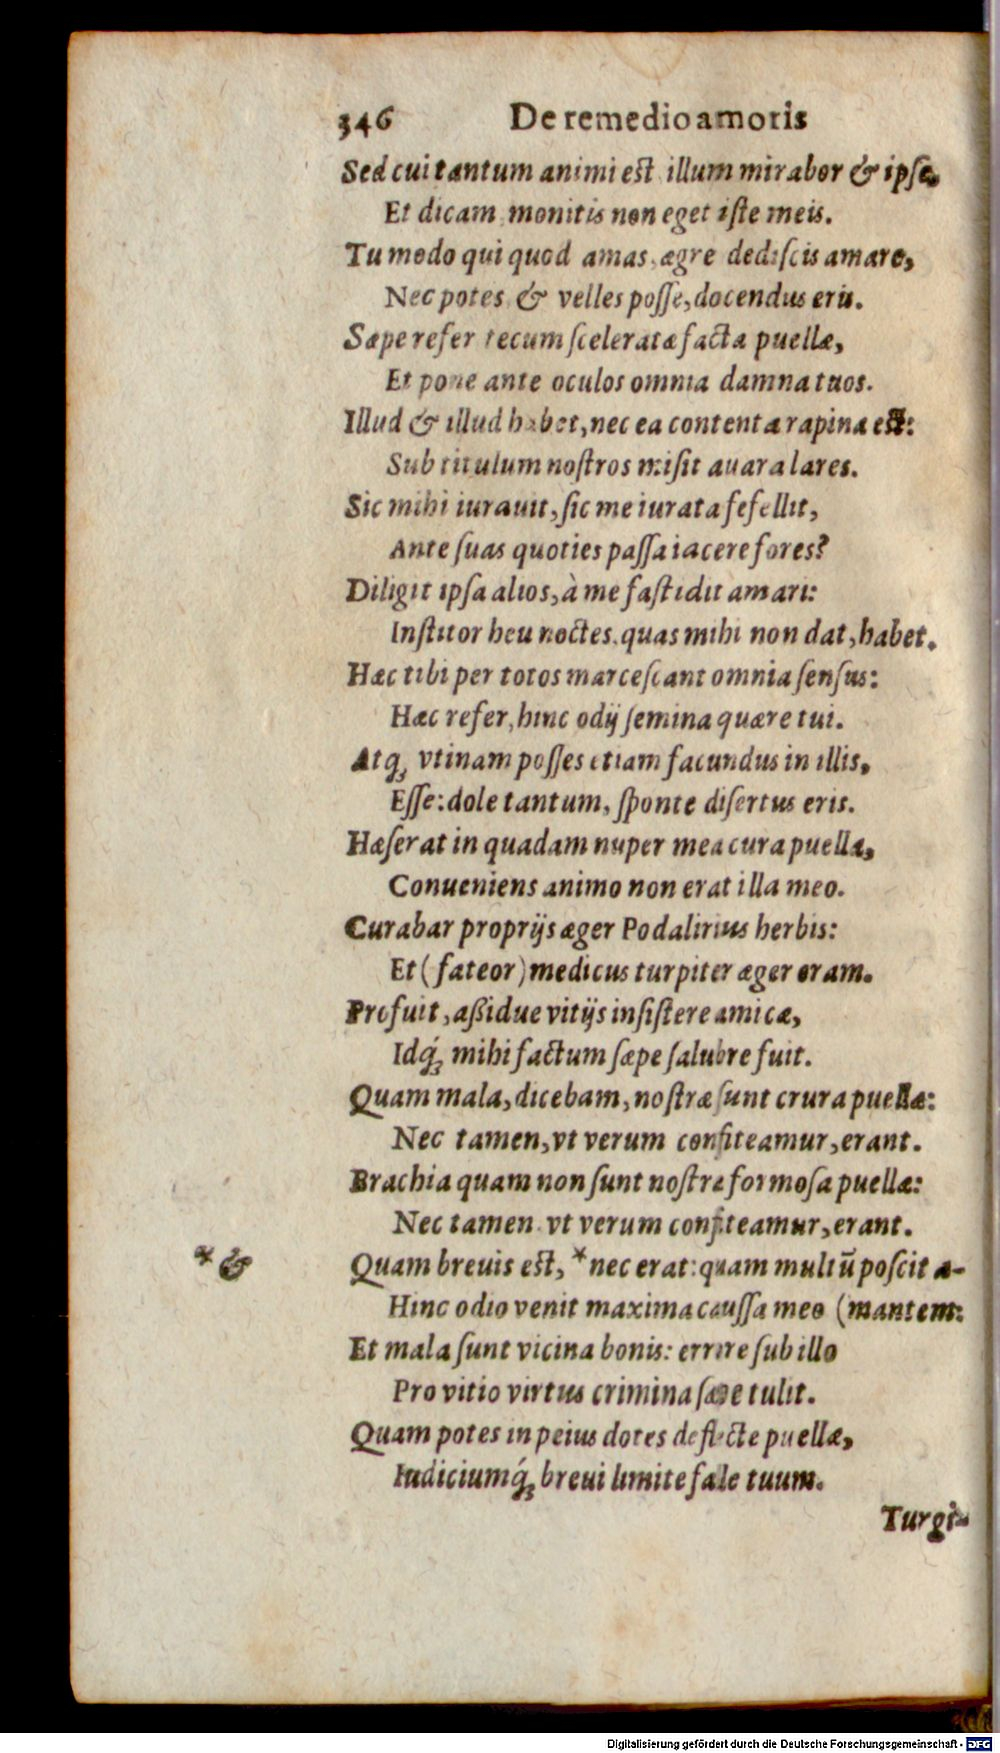 346 De remedio amoris
Sed cui tantum animi est illum mirabor & ipse,
Et dicam, monitis non eget iste meis.
Tu modo qui quod amas, ægre dediscis amare,
Nec potes, & velles posse, docendus eris.
Sæpe refer tecum sceleratæ facta puellæ,
Et pone ante oculos omnia damna tuos.
Illud & illud habet, nec ea contenta rapina est:
Sub titulum nostros misit auara lares.
Sic mihi iurauit, sic me iurata fefellit,
Ante suas quoties passa iacere fores?
Diligit ipsa alios, à me fastidit amari:
Institor heu noctes, quas mihi non dat, habet.
Hæc tibi per totos marcescant omnia sensus:
Hæc refer, hinc odij semina quære tui.
Atq; vtinam posses etiam facundus in illis,
Esse: dole tantum, sponte disertus eris.
Hæserat in quadam nuper mea cura puella,
Conueniens animo non erat illa meo.
Curabar proprijs æger Podalirius herbis:
Et (fateor) medicus turpiter æger eram.
Profuit, aßidue vitijs insistere amicæ,
Idq́; mihi factum sæpe salubre fuit.
Quam mala, dicebam, nostræ sunt crura puellæ:
Nec tamen, vt verum confiteamur, erant.
Brachia quam non sunt nostræ formosa puellæ:
Nec tamen vt verum confiteamur, erant.
* & Quam breuis est, * nec erat: quam multũ poscit a-
Hinc odio venit maxima caussa meo (mantem:
Et mala sunt vicina bonis: errore sub illo
Pro vitio virtus crimina sæpe tulit.
Quam potes in peius dotes deflecte puellæ,
Iudiciumq́; breui limite falle tuum.
Turgi-
Digitalisierung gefördert durch die Deutsche Forschungsgemeinschaft - DFG